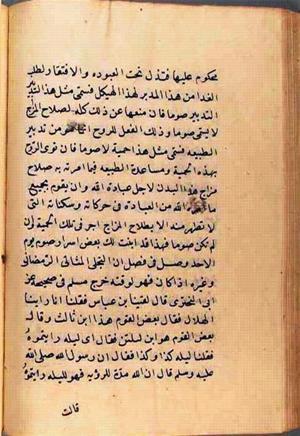 محكوم عليها فتذل تحت العبوده والافتقار لطلب
الغدا من هذا المدبر لهذا الهيكل فسمى مثل هذا التدبير
التدبير صوما فان منعها عن ذلك كله لصلاح المزاج
لا يسمى صوما وذلك الفعل للروح انما هو من تدبير
الطبيعه فسمى مثل هذا حمية لا صوما فان نوى الروح
بهذه الحمية ومساعدة الطبيعه فيما امرته به صلاح
مزاج هذا البدن لاجل عبادة الله وان يقوم بجميع
ما الله من العبادة في حركاته وسكناته التى
لا تظهر منه الا بصلاح المزاج اجر فى تلك الحمية ان
لم تكن صوما فهذا قد ابنت لك بعض اسرار صوم يوم
الاحد وصل في فصل ان التجلى المثالى الرمضانى
وغيره اذا كان فهو لوقته خرج مسلم فى صحيحه عن
ابى البخترى قال لقينا ابن عباس فقلنا انا راينا
الهلال فقال بعض القوم هذا ابن ثالث وقال
بعض القوم هو ابن ليلتين فقال اى ليله رايتموه
فقلنا ليله كذا وكذا فقال ان رسول الله صلى الله
عليه وسلم قال ان الله مده للرويه فهو لليله رايتموه
قالت